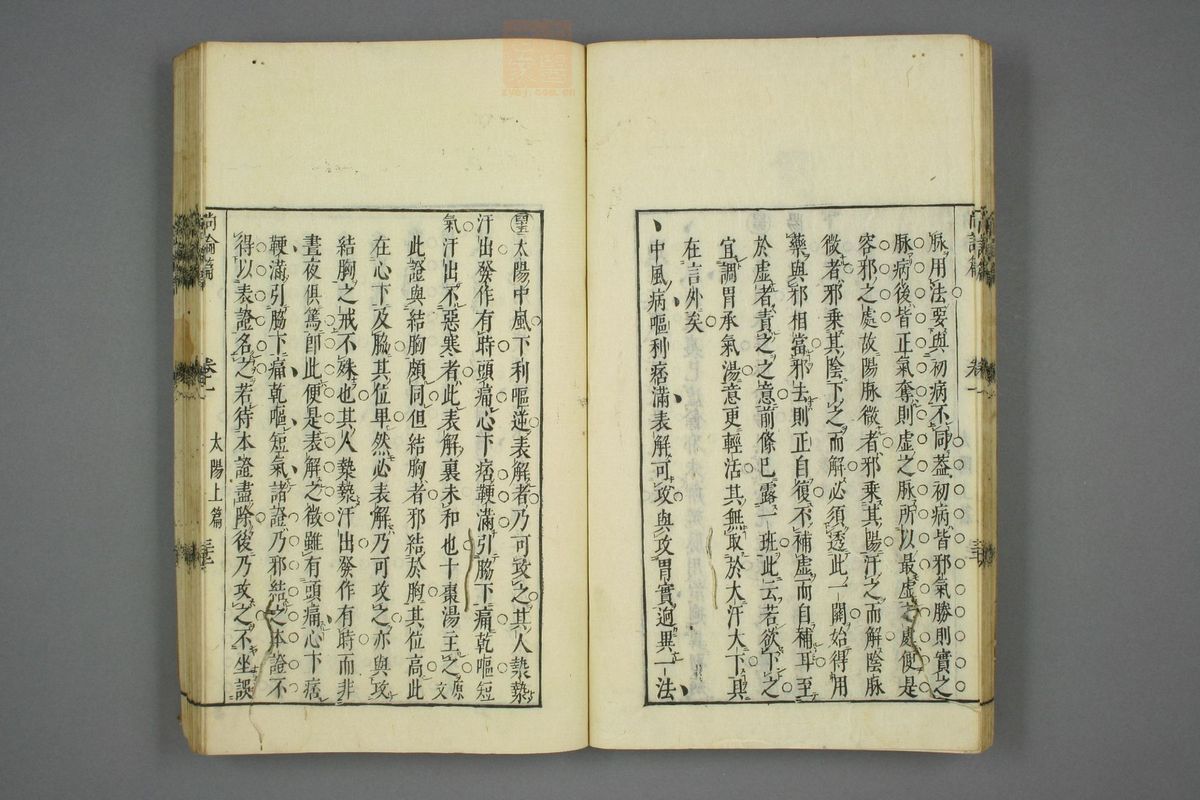 脉用法要與初病不同葢初病皆邪氣勝則實之
脉病後皆正氣奪則虛之脉所以最虛之處便是
容邪之處故陽脉微者邪乗其陽汗之而解陰脉
微者邪乗其陰下之而解必須透此一關始得用
藥與邪相當邪去則正自復不補虛而自補耳至
於虛者責之之意前條已露一班此云若欲下之
宜調胃承氣湯意更輕活其無取於大汗大下具
在言外矣
中風病嘔利痞滿表解可攻與攻胃實逈異一法
太陽中風下利嘔逆表解者乃可攻之其人漐漐
汗出發作有時頭痛心下痞鞕滿引脇下痛乾嘔短
氣汗出不惡寒者此表解裏未和也十棗湯主之原文
此證與結胸頗同但結胸者邪結於胸其位高此
在心下及脇其位卑然必表解乃可攻之亦與攻
結胸之戒不殊也其人漐漐汗出發作有時而非
晝夜俱篤卽此便是表解之徵雖有頭痛心下痞
鞕滿引脇下痛乾嘔短氣諸證乃邪結之本證不
得以表證名之若待本證盡除後乃攻之不坐誤
尚論篇 卷一 太陽上篇
尚論篇 卷一